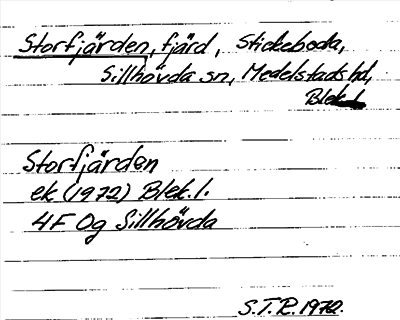 Storfjärden, fjärd, Stickeboda,
Sillhövda sn, Medelstads hd,
Blek.l.
Storfjärden
ek (1972) Blek.l.
4F 0g Sillhövda
S.T.R. 1972.